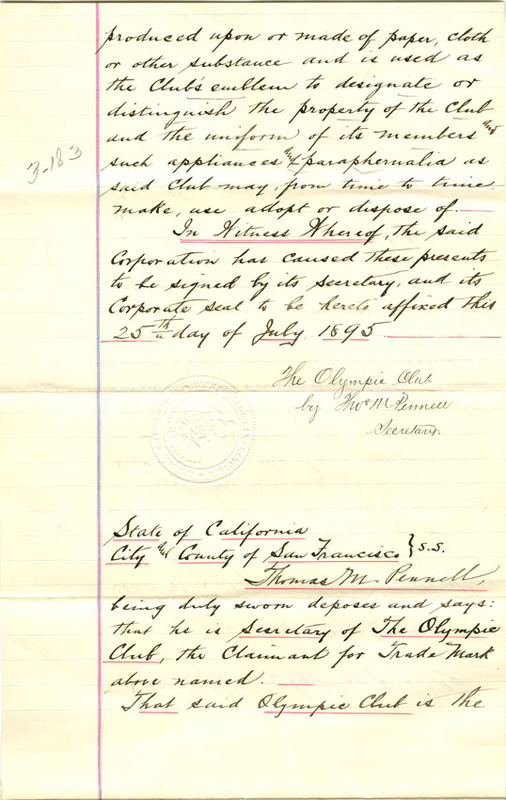 produced upon or made of paper, cloth
or other substance and is used as
the Club's emblem to designate or
distinguish the property of the Club
and the uniform of its members and
such appliances and paraphernalia as
said Club may, from time to time,
make, use adopt or dispose of.
3-183
In Witness Whereof, the said
Corporation has caused these presents
to be signed by its secretary, and its
Corporate seal to be hereto affixed this
25th day of July 1895
The Olympic Club
by Thos M Pennell
Secretary.
State of California
City and County of San Francisco } s.s.
Thomas M. Pennell,
being duly sworn deposes and says:
that he is Secretary of The Olympic
Club, the Claimant for Trade Mark
above named.
That said Olympic Club is the